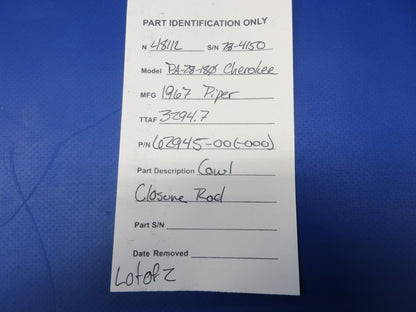 PART IDENTIFICATION ONLY
N 48112 S/N 28-4150
Model PA-28-180 Cherokee
MFG 1967 Piper
TTAF 3294.7
P/N 62945-00(-000)
Part Description Cowl
Closure Rod
Part S/N
Date Removed
Lot of 2